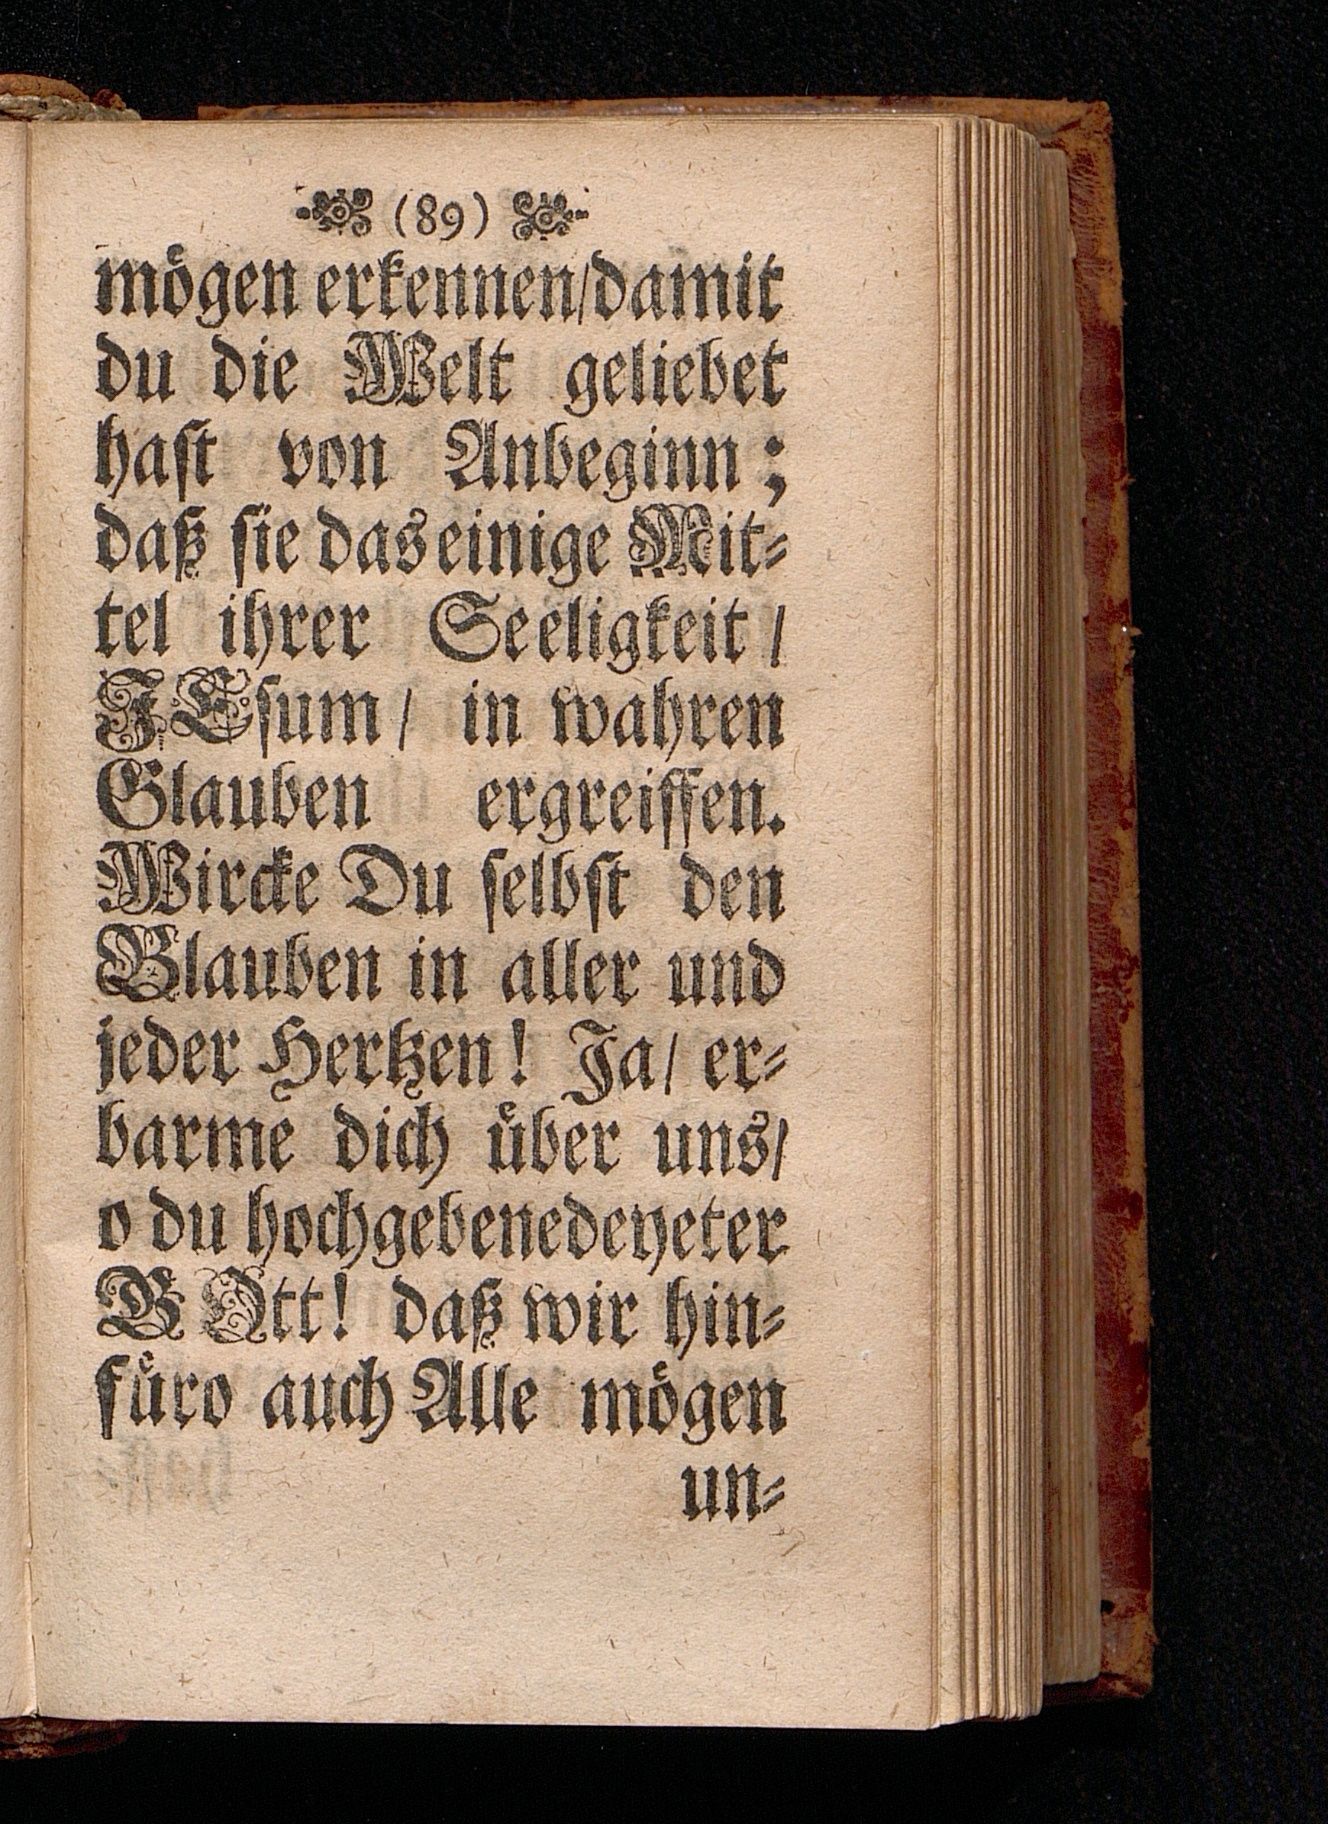 (89)
mögen erkennen/damit
du die Welt geliebet
hast von Anbeginn;
daß sie das einige Mit-
tel ihrer Seeligkeit/
JEsum/ in wahren
Glauben ergreiffen.
Wircke Du selbst den
Glauben in aller und
jeder Hertzen! Ja/ er-
barme dich über uns/
o du hochgebenedeyeter
GOtt! daß wir hin-
füro auch Alle mögen
un-